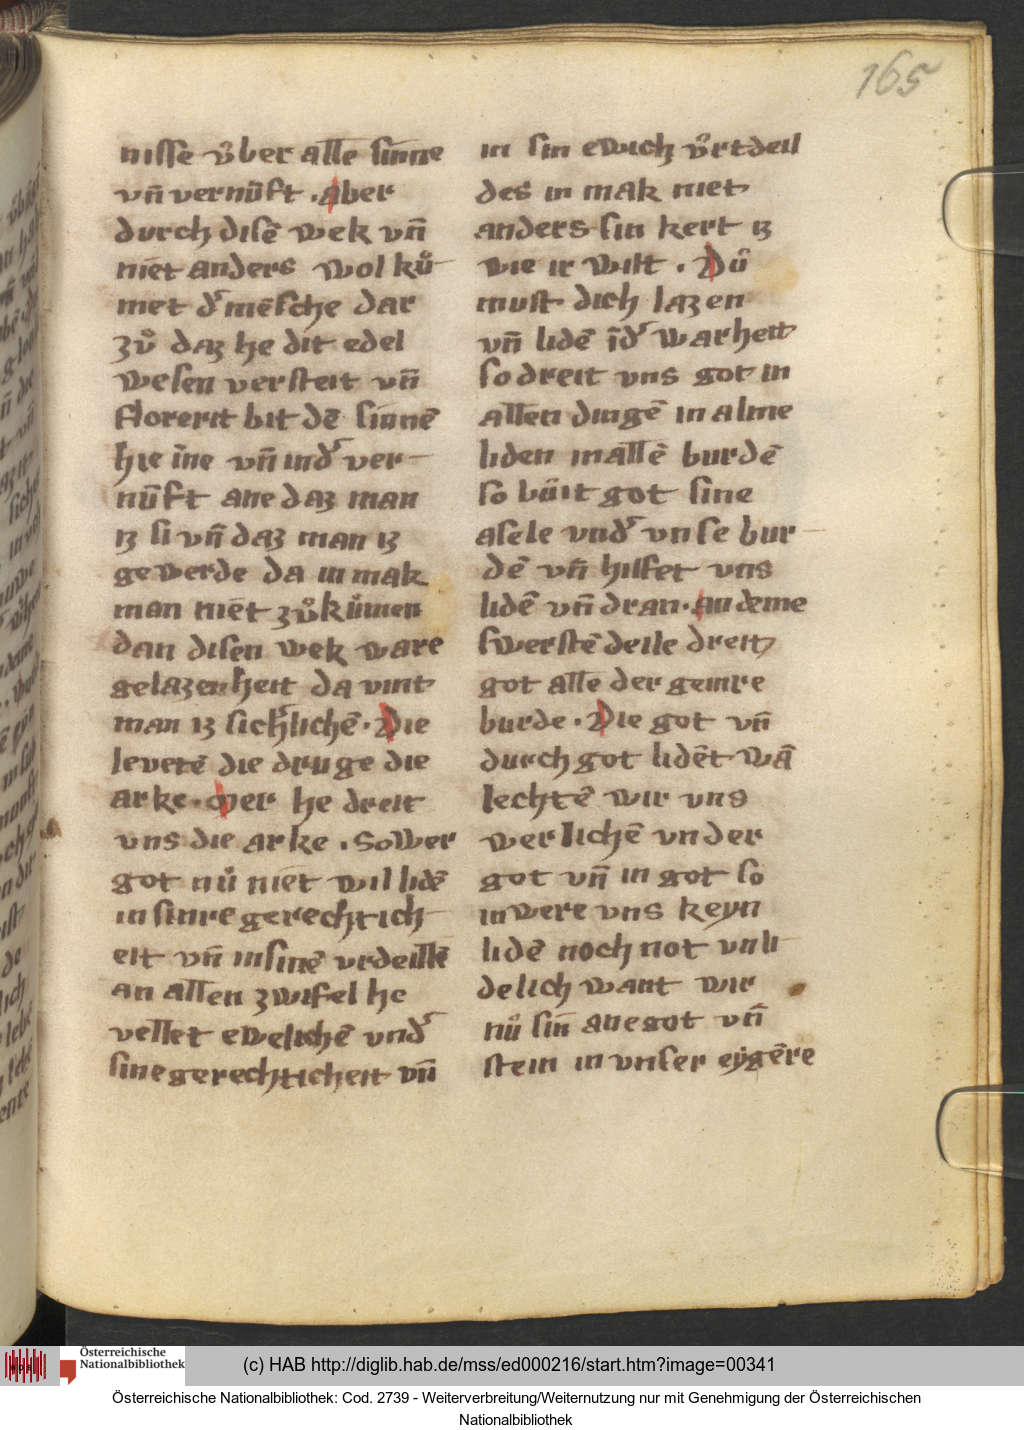 165
nisse vͦber alle sinne
vn̄ vernūft · aber
durch disē wek vn̄
niet anders wol kuͦ
met dʾ mēsche dar
zvͦ daz he dit edel
wesen versteit vn̄
florerit bit dē sinnē
hie īne vn̄ indʾ ver
nūft ane daz man
iz si vn̄ daz man iz
gewerde da in mak
man niet zvͦ kuͦmen
dan disen wek ware
gelazenheit da vint
man iz sichʾlichē · Die
levetē die druge die
arke · Mer he dreit
vns die arke · So wer
got nuͦ niet wil lidē
in sinre gerechtich
eit vn̄ in sinē vrdeillē
an allen zwifel he
vellet ewelichē vndʾ
sine gerechticheit vn̄
in sin ewich vͦrtdeil
des in mak niet
anders sin kert iz
wie ir wilt · Duͦ
must dich lazen
vn̄ lidē īdʾ warheit
so dreit vns got in
allen dingē in alme
liden in allē burdē
so buͦit got sine
asele vndʾ vnse bur
dē vn̄ hilfet vns
lidē vn̄ dran · an deme
swerstē deile dreit
got alle der geinre
burde · Die got vn̄
durch got lidēt wā
lechtē wir vns
werlichē vnder
got vn̄ in got so
in were vns keyn
lidē noch not vnli
delich want wir
nuͦ sin ane got vn̄
stein in vnser eygēre
Österreichische
Nationalbibliothek
(c) HAB http://diglib.hab.de/mss/ed000216/start.htm?image=00341
Österreichische Nationalbibliothek: Cod. 2739 - Weiterverbreitung/Weiternutzung nur mit Genehmigung der Österreichischen
Nationalbibliothek